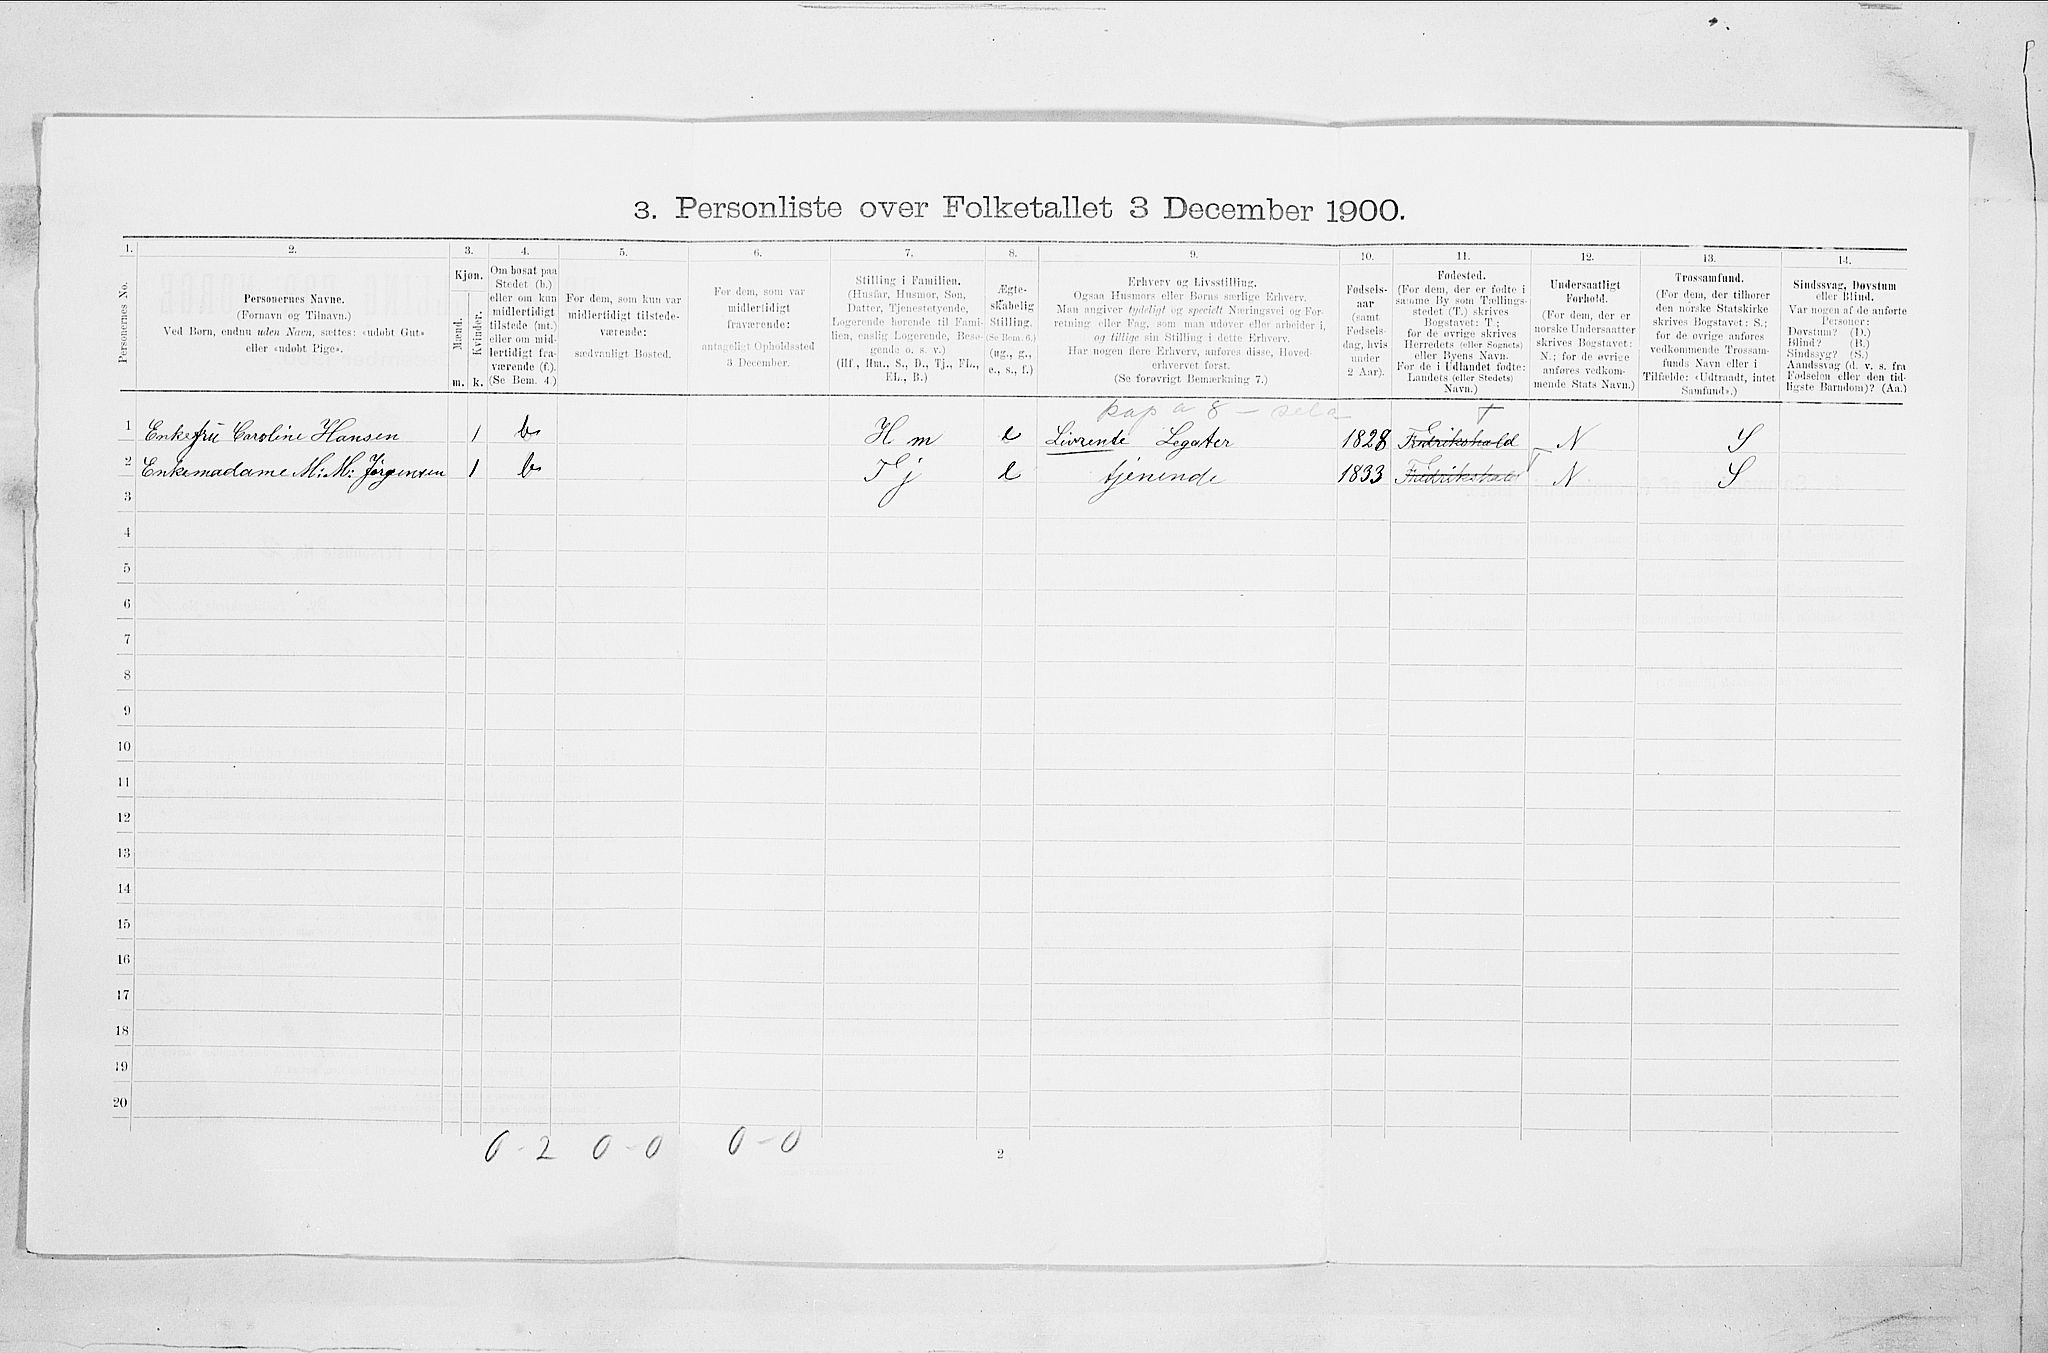 3. Personliste over Folketallet 3 December 1900.
1. 2. 3. 4. 5. 6. 7. 8. 9. 10. 11. 12. 13. 14.
Personernes No.
Personernes Navne.
(Fornavn og Tilnavn.)
Ved Børn, endnu uden Navn, sættes: «udøbt Gut»
eller «udøbt Pige».
Kjøn.
Mænd. Kvinder.
m. k.
Om bosat paa
Stedet (b.)
eller om kun
midlertidigt
tilstede (mt.)
eller om mid-
lertidigt fra-
værende (f.).
(Se Bem. 4.)
For dem, som kun var
midlertidigt tilstede-
værende:
sædvanligt Bosted.
For dem, som var
midlertidigt
fraværende:
antageligt Opholdssted
3 December.
Stilling i Familien.
(Husfar, Husmor, Søn,
Datter, Tjenestetyende,
Logerende hørende til Fami-
lien, enslig Logerende, Besø-
gende o. s. v.)
(Hf., Hm., S., D., Tj., FL.,
EL., B.)
Ægte-
skabelig
Stilling.
(Se Bem. 6.)
(ug., g.,
e., s., f.)
Erhverv og Livsstilling.
Ogsaa Husmors eller Børns særlige Erhverv.
Man angiver tydeligt og specielt Næringsvei og For-
retning eller Fag, som man udøver eller arbeider i,
og tillige sin Stilling i dette Erhverv.
Har nogen flere Erhverv, anføres disse, Hoved-
erhvervet først.
(Se forøvrigt Bemærkning 7.)
Fødsels-
aar
(samt
Fødsels-
dag, hvis
under
2 Aar).
Fødested.
(For dem, der er fødte i
samme By som Tællings-
stedet (T.) skrives
Bogstavet: T.;
for de øvrige skrives
Herredets (eller Sognets)
eller Byens Navn.
For de i Udlandet fødte:
Landets (eller Stedets)
Navn.)
Undersaatligt
Forhold.
(For dem, der er
norske Undersaatter
skrives Bogstavet:
N.; for de øvrige
anføres vedkom-
mende Stats Navn.)
Trossamfund.
(For dem, der tilhører
den norske Statskirke
skrives Bogstavet: S.;
for de øvrige anføres
vedkommende Trossam-
funds Navn eller i
Tilfælde: «Udtraadt, intet
Samfund».)
Sindssvag, Døvstum
eller Blind.
Var nogen af de anførte
Personer:
Døvstum? (D.)
Blind? (B.)
Sindssyg? (S.)
Aandssvag (d. v. s. fra
Fødselen eller den tid-
ligste Barndom)? (Aa.)
kap a 8 — T
1 Enkefru Caroline Hansen 1 b H m e Livrente Legater 1828 Fredrikshald N S
2 Enkemadame M: M: Jørgensen 1 b Tj e tjenende 1833 Fredrikshald T N S
3
4
5
6
7
8
9
10
11
12
13
14
15
16
17
18
19
20
0-2 0-0 0-0
2